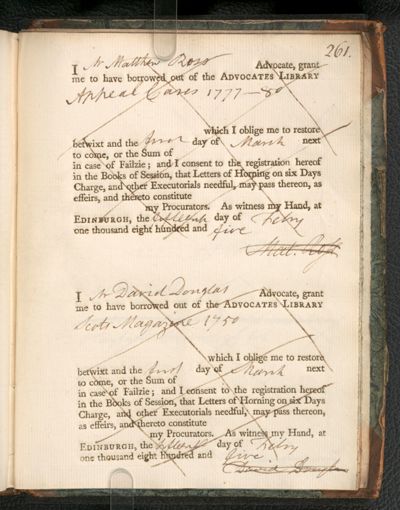 261.
I Mr Matthew Ross Advocate, grant
me to have borrowed out of the ADVOCATES LIBRARY
Appeal Cases 1777-80
which I oblige me to restore
betwixt and the first day of March next
to come, or the Sum of
in case of Failzie; and I consent to the registration hereof
in the Books of Session, that Letters of Horning on six Days
Charge, and other Executorials needful, may pass thereon, as
effeirs, and thereto constitute
my Procurators. As witness my Hand, at
EDINBURGH, the fifteenth day of Febry
one thousand eight hundred and five
Mat. Ross
I Mr David Douglas Advocate, grant
me to have borrowed out of the ADVOCATES LIBRARY
Scots Magazine 1750
which I oblige me to restore
betwixt and the first day of March next
to come, or the Sum of
in case of Failzie; and I consent to the registration hereof
in the Books of Session, that Letters of Horning on six Days
Charge, and other Executorials needful, may pass thereon,
as effeirs, and thereto constitute
my Procurators. As witness my Hand, at
EDINBURGH, the day of Febry
one thousand eight hundred and five
David Douglas